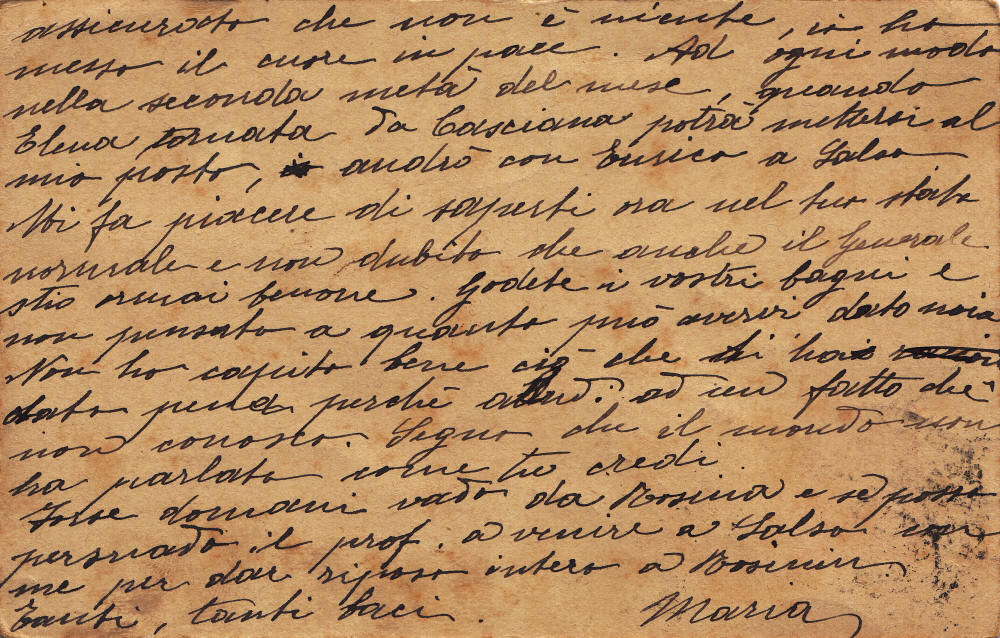 assicurato che non è niente, io ho
messo il cuore in pace. Ad ogni modo
nella seconda metà del mese, quando
Elena tornata da Casciana potrà mettersi al
mio posto, andrò con Enrico a Salso
Mi fa piacere di saperti ora nel tuo stato
normale e non dubito che anche il Generale
stia ormai benone. Godete i vostri bagni e
non pensate a quanto può avervi dato noia
Non ho capito bene ciò che ti ha
dato pena perchè ad un fatto che
non conosco. Segno che il mondo non
ha parlato come tu credi.
Forse domani vado da Rosina e se posso
persuado il prof. a venire a Salso con
me per dar riposo intero a Rosinin
Tanti, tanti baci. Maria